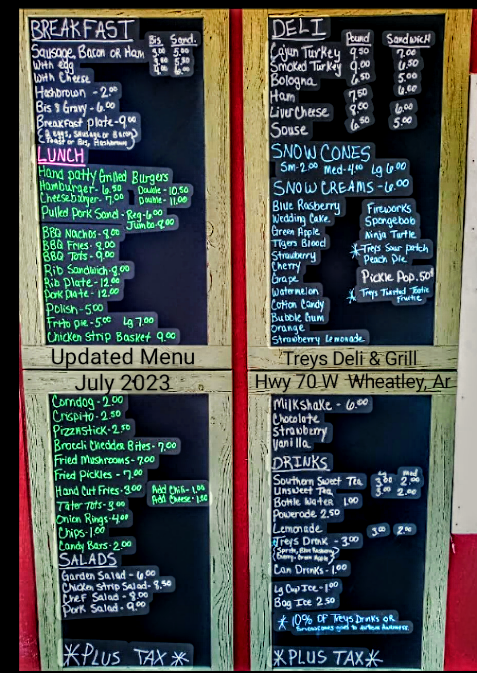 BREAKFAST
Bis Sand.
Sausage, Bacon or Ham 3.00 5.00
With egg
With Cheese
Hashbrown - 2.00
Bis & Gravy - 6.00
Breakfast plate - 9.00
(2 eggs, Sausage or Bacon)
(Toast or Bis, Hashbrown)
LUNCH
Hand patty Grilled Burgers
Hamburger - 6.50 Double - 10.50
Cheeseburger - 7.00 Double - 11.00
Pulled Pork Sand - Reg - 6.00
Jumbo 8.00
BBQ Nachos - 8.00
BBQ Fries - 8.00
BBQ Tots - 9.00
Rib Sandwich - 8.00
Rib Plate - 12.00
Pork Plate - 12.00
Polish - 5.00
Frito pie - 5.00 Lg 7.00
Chicken Strip Basket 9.00
Updated Menu
July 2023
Corndog - 2.00
Crispito - 2.50
Pizzastick - 2.50
Broccli Cheddar Bites - 7.00
Fried Mushrooms - 7.00
Fried Pickles - 7.00
Hand Cut Fries - 3.00 Add Chili - 1.00
Add Cheese - 1.50
Tater Tots - 3.00
Onion Rings - 4.00
Chips - 1.00
Candy Bars - 2.00
SALADS
Garden Salad - 6.00
Chicken Strip Salad - 8.50
Chef Salad - 8.00
Pork Salad - 9.00
*PLUS TAX*
DELI
Pound Sandwich
Cajun Turkey 9.50 7.00
Smoked Turkey 9.00 6.50
Bologna 6.50 5.00
Ham 7.50 6.00
Liver Cheese 8.00 6.00
Souse 6.50 5.00
SNOW CONES
Sm - 2.00 Med - 4.00 Lg 6.00
SNOW CREAMS - 6.00
Blue Rasberry
Wedding Cake
Green Apple
Tigers Blood
Strawberry
Cherry
Grape
Watermelon
Cotton Candy
Bubble Gum
Orange
Strawberry Lemonade
Fireworks
Spongebob
Ninja Turtle
*Treys Sour Patch
Peach Pie
Pickle Pop .50¢
*Treys Twisted Tootie
Fruitie
Treys Deli & Grill
Hwy 70 W Wheatley, Ar
Milkshake - 6.00
Chocolate
Strawberry
Vanilla
DRINKS
Lg Med
Southern Sweet Tea 3.00 2.00
Unsweet Tea 3.00 2.00
Bottle Water 1.00
Powerade 2.50
Lemonade 3.00 2.00
Treys Drink - 3.00
(Sprite, Blue Rasberry
Cherry, Green Apple)
Can Drinks - 1.00
Lg Cup Ice - 1.00
Bag Ice 2.50
* 10% OF Treys Drinks or
goes to Autism Awareness.
*PLUS TAX*